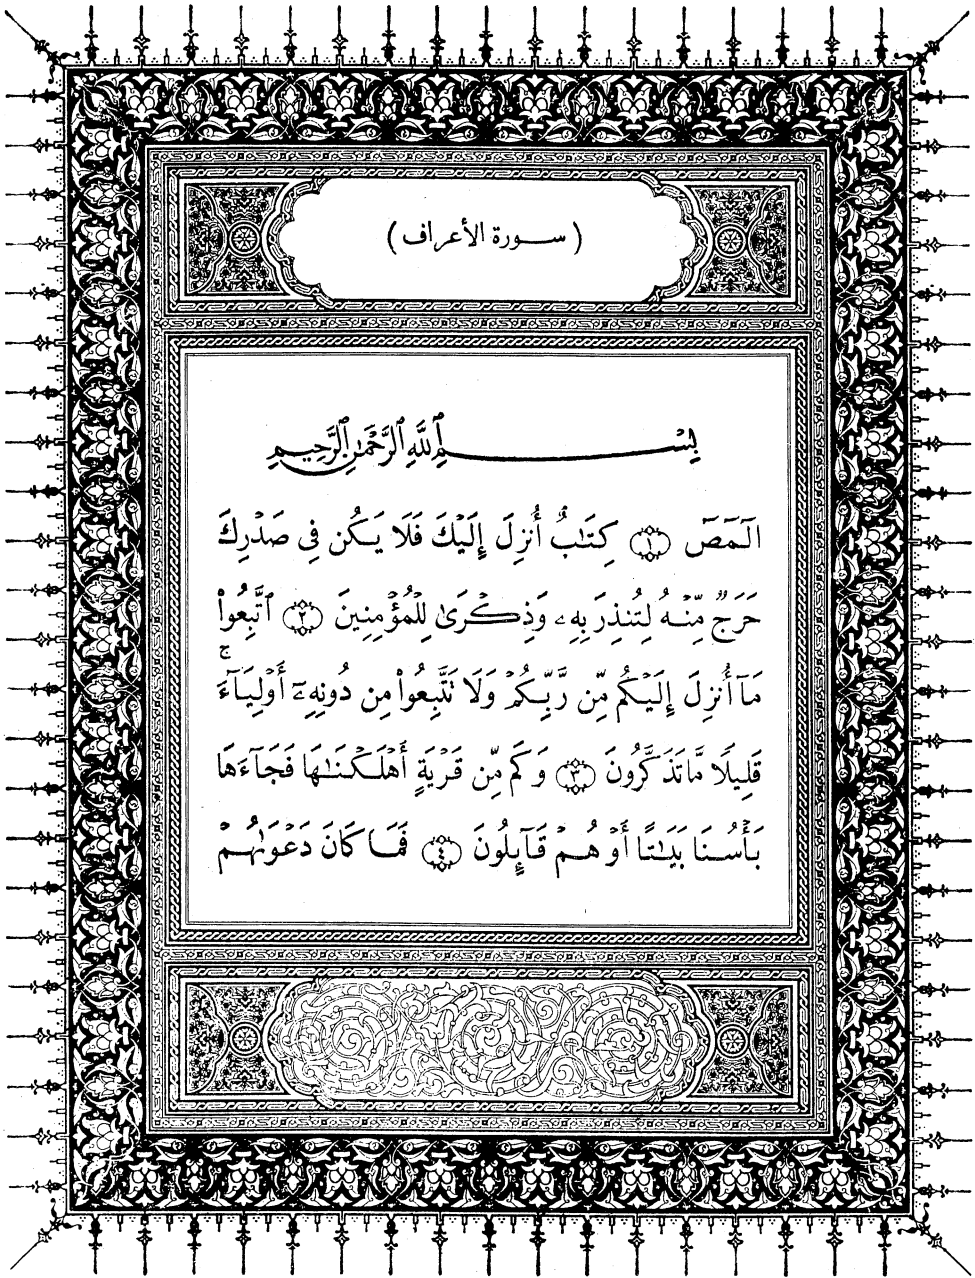 ( سورة الأعراف )
بِسْمِ ٱللَّهِ ٱلرَّحْمَٰنِ ٱلرَّحِيمِ
الٓمٓصٓ ۝١ كِتَٰبٌ أُنزِلَ إِلَيْكَ فَلَا يَكُن فِى صَدْرِكَ
حَرَجٌ مِّنْهُ لِتُنذِرَ بِهِۦ وَذِكْرَىٰ لِلْمُؤْمِنِينَ ۝٢ ٱتَّبِعُوا۟
مَآ أُنزِلَ إِلَيْكُم مِّن رَّبِّكُمْ وَلَا تَتَّبِعُوا۟ مِن دُونِهِۦٓ أَوْلِيَآءَ ۗ
قَلِيلًا مَّا تَذَكَّرُونَ ۝٣ وَكَم مِّن قَرْيَةٍ أَهْلَكْنَٰهَا فَجَآءَهَا
بَأْسُنَا بَيَٰتًا أَوْ هُمْ قَآئِلُونَ ۝٤ فَمَا كَانَ دَعْوَىٰهُمْ